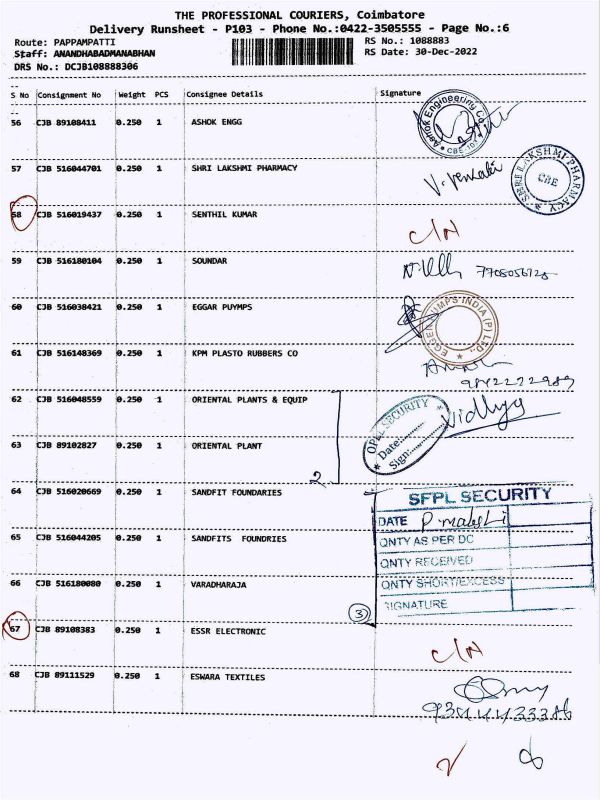 THE PROFESSIONAL COURIERS, Coimbatore
Delivery Runsheet - P103 - Phone No.:0422-3505555 - Page No.:6
Route: PAPPAMPATTI RS No.: 1088883
Staff: ANANDHABADMANABHAN RS Date: 30-Dec-2022
DRS No.: DCJB108888306
S No Consignment No Weight PCS Consignee Details Signature
56 CJB 89108411 0.250 1 ASHOK ENGG
Ashok Engineering Co.
57 CJB 516044701 0.250 1 SHRI LAKSHMI PHARMACY V. Venkati
SHREE LAKSHMI PHARMACY CBE
58 CJB 516019437 0.250 1 SENTHIL KUMAR C/N
59 CJB 516180104 0.250 1 SOUNDAR
60 CJB 516038421 0.250 1 EGGAR PUYMPS
EGGER PUMPS INDIA (P) LTD.,
61 CJB 516148369 0.250 1 KPM PLASTO RUBBERS CO
9842222989
62 CJB 516048559 0.250 1 ORIENTAL PLANTS & EQUIP Vidhya
OPEL SECURITY
Date:
Sign:
63 CJB 89102827 0.250 1 ORIENTAL PLANT
2
64 CJB 516020669 0.250 1 SANDFIT FOUNDARIES
SFPL SECURITY
DATE
QNTY AS PER DC
65 CJB 516044205 0.250 1 SANDFITS FOUNDRIES
QNTY RECEIVED
66 CJB 516180080 0.250 1 VARADHARAJA
QNTY SHORT/EXCESS
SIGNATURE
3
67 CJB 89108383 0.250 1 ESSR ELECTRONIC C/N
68 CJB 89111529 0.250 1 ESWARA TEXTILES